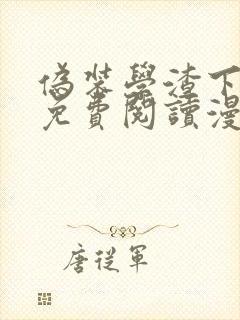 偽裝學渣下
免費閱讀漫
唐從軍